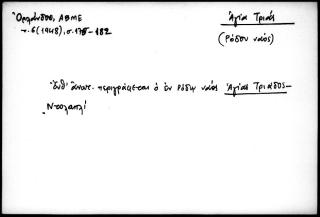 Ὀρλάνδος, ΑΒΜΕ
τ. 6 (1948), σ. 178-182
Ἁγία Τριάς
(Ρόδου ναός)
Ἔνθ' ἀνωτ. περιγράφεται ὁ ἐν Ρόδῳ ναός Ἁγίας Τριάδος-
Ντολαπλί